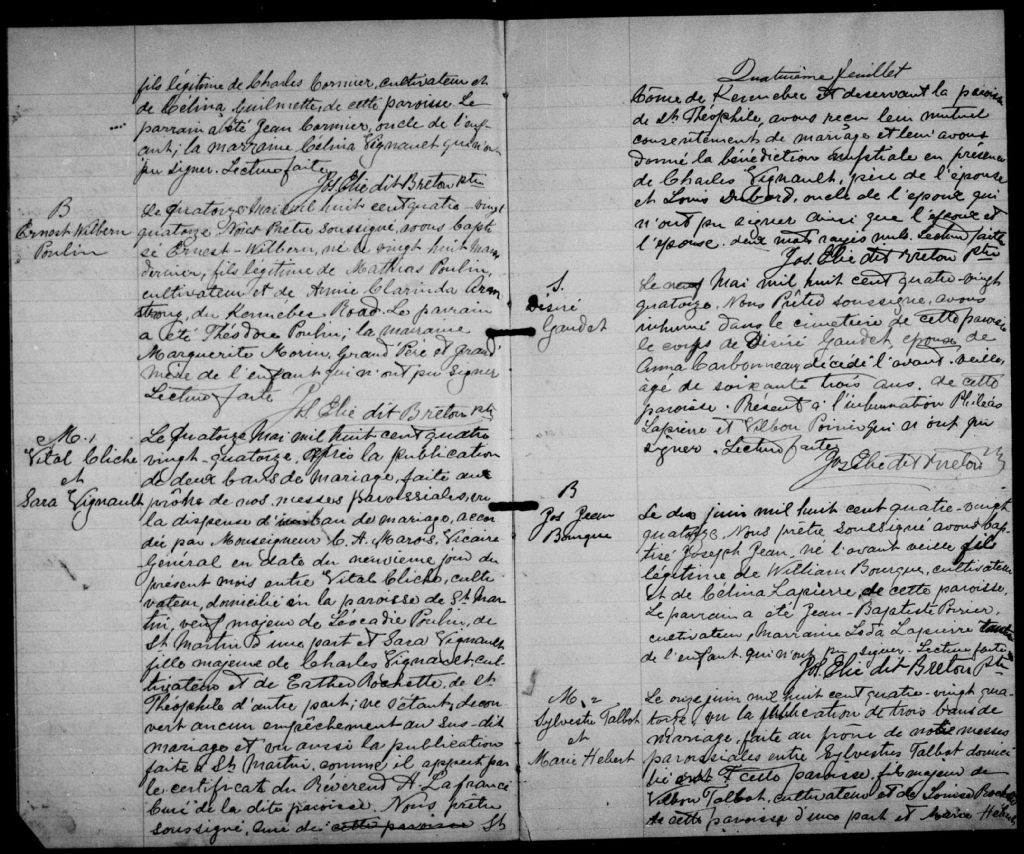 fils légitime de Charles Cormier, cultivateur et
de Célina Guilmette, de cette paroisse. Le
parrain a été Jean Cormier, oncle de l'enf-
ant; la marraine Célina Vignault qui n'ont
pu signer. Lecture faite
Jos. Elie dit Breton Ptre
B
Ernest Wilbern
Poulin
Le quatorze Mai mil huit cent quatre-vingt
quatorze Nous Prêtre soussigné, avons bapti
sé Ernest-Wilbern, né le vingt huit Mars
dernier, fils légitime de Mathias Poulin,
cultivateur et de Annie Clarinda Arm
strong, du Kennebec Road. Le parrain
a été Théodore Poulin; la marraine
Marguerite Morin, Grand'Père et grand'
mère de l'enfant qui n'ont pu signer
Lecture faite
Jos. Elie dit Breton Ptre
M. 1
Vital Cliche
et
Sara Vignault
Le quatorze Mai mil huit cent quatre
vingt-quatorze, après la publication
de deux bans de mariage, faite aux
prônes de nos messes paroissiales, vu
la dispense d'un ban de mariage, accor
dée par Monseigneur C. A. Marois, Vicaire
Général en date du neuvième jour du
présent mois entre Vital Cliche, culti
vateur, domicilié en la paroisse de St Mar
tin, veuf majeur de Léocadie Poulin, de
St Martin d'une part et Sara Vignault
fille majeure de Charles Vignault, cul-
tivateur et de Esther Rochette, de St
Théophile d'autre part; ne s'étant découvert
vert aucun empêchement au sus-dit
mariage et vu aussi la publication
faite à St Martin, comme il appert par
le certificat du Révérend H. Lafrance
Curé de la dite paroisse. Nous prêtre
soussigné, Curé de cette paroisse St
Quatrième feuillet
Côme de Kennebec et desservant la paroisse
de St Théophile, avons reçu leur mutuel
consentement de mariage et leur avons
donné la bénédiction nuptiale en présence
de Charles Vignault, père de l'épouse
et Louis Dubord, oncle de l'époux qui
n'ont pu signer ainsi que l'époux et
l'épouse. deux mots rayés nuls. Lecture faite
Jos. Elie dit Breton Ptre
S.
Désiré
Gaudet
Le Mai mil huit cent quatre-vingt
quatorze. Nous Prêtre soussigné, avons
inhumé dans le cimetière de cette paroisse
le corps de Désiré Gaudet, époux de
Anna Carbonneau, décédé l'avant-veille,
âgé de soixante trois ans, de cette
paroisse. Présent à l'inhumation Philéas
Lapierre et Wilbon Poirier qui n'ont pu
signer. Lecture faite
Jos. Elie dit Breton Ptre
B
Jos Jean
Bourque
Le dix juin mil huit cent quatre-vingt
quatorze, Nous prêtre soussigné avons bap
tisé Joseph Jean, né l'avant veille fils
légitime de William Bourque, cultivateur
et de Célina Lapierre, de cette paroisse.
Le parrain a été Jean-Baptiste Poirier,
cultivateur, Marraine Léda Lapierre tante
de l'enfant qui n'ont pu signer. Lecture faite
Jos. Elie dit Breton Ptre
M. 2
Sylvestre Talbot
et
Marie Hebert
Le onze juin mil huit cent quatre-vingt qua
torze, vu la publication de trois bans de
mariage, faite au prône de notre messes
paroissiales entre Sylvestre Talbot domici
lié cette paroisse, fils majeur de
Talbot, cultivateur et de Louise
de cette paroisse d'une part et Marie Hebert